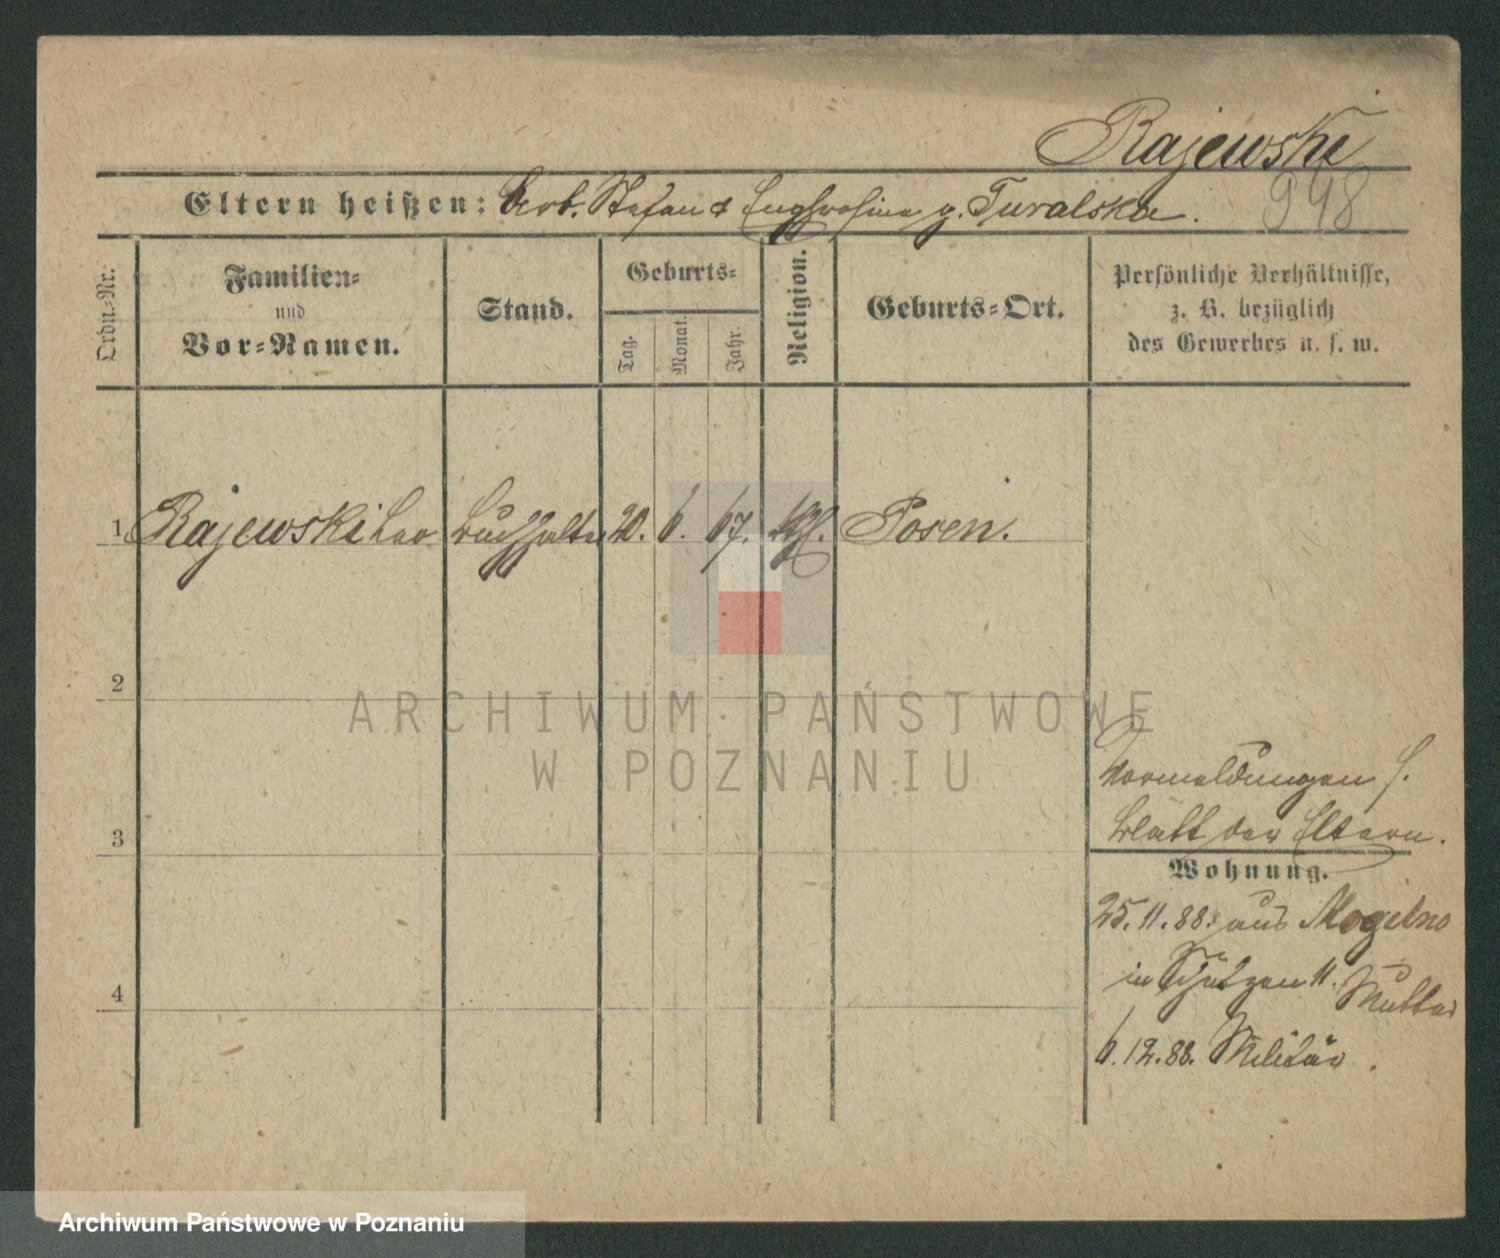 Rajewski
948
Eltern heißen: Arb. Stefan & Euphrosine g. Turalska.
Ordn.-Nr.
Familien-
und
Vor-Namen.
Stand.
Geburts-
Tag.
Monat.
Jahr.
Religion.
Geburts-Ort.
Persönliche Verhältnisse,
z. B. bezüglich
des Gewerbes u. s. w.
1 Rajewski Leo Buchhalter 20. 6. 67. kth. Posen.
2
ARCHIWUM PAŃSTWOWE
W POZNANIU
Vormeldungen s.
3
Blatt der Eltern.
Wohnung.
25.11.88. aus Mogilno
in Schützen 11. Mutter
4
6.12.88. Militär.
Archiwum Państwowe w Poznaniu